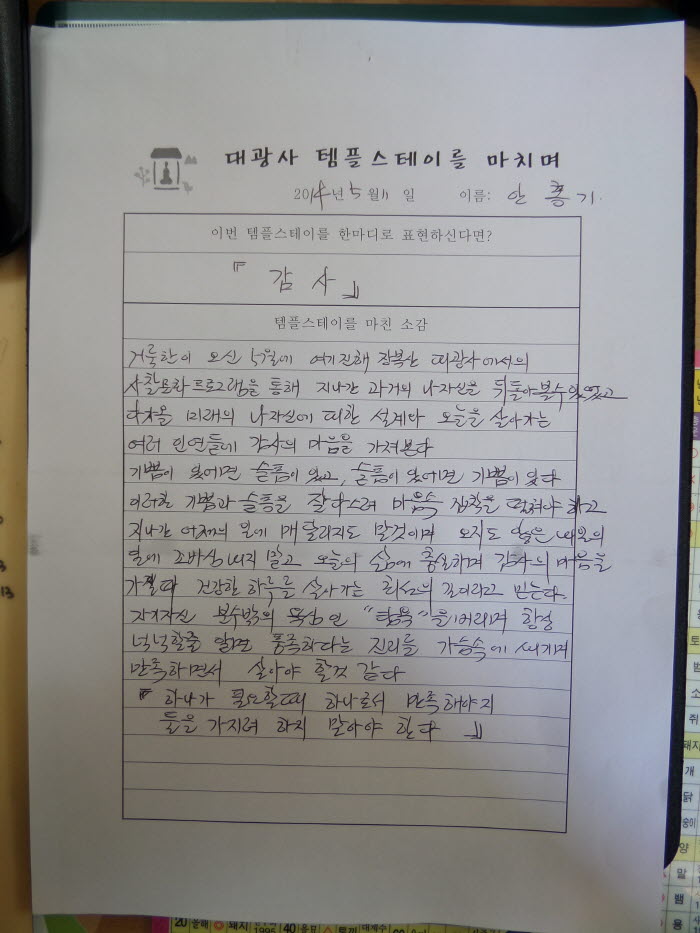 대광사 템플스테이를 마치며
2014년 5월 11일 이름: 안홍기
이번 템플스테이를 한마디로 표현하신다면?
『 감사 』
템플스테이를 마친 소감
거룩한이 오신 5월에 여기진해 장복산 대광사에서의
사찰문화프로그램을 통해 지나간 과거의 나자신을 뒤돌아볼수있었고
다가올 미래의 나자신에 대한 설계와 오늘을 살아가는
여러 인연들에 감사의 마음을 가져본다
기쁨이 있으면 슬픔이 있고, 슬픔이 있으면 기쁨이 있다
이러한 기쁨과 슬픔을 잘다스려 마음속 집착을 떨쳐야 하고
지나간 어제의 일에 매달리지도 말것이며 오지도 않은 내일의
일에 조바심내지 말고 오늘의 삶에 충실하며 감사의 마음을
가질때 건강한 하루를 살아가는 최선의 길이라고 믿는다.
자기자신 분수밖의 욕심인 "탐욕"을 버리며 항상
넉넉할줄 알면 풍족하다는 진리를 가슴속에 새기며
만족하면서 살아야 할것 같다
『 하나가 필요할때 하나로서 만족해야지
둘을 가지려 하지 말아야 한다 』
20 올해 돼지 1995 40 용띠 토끼
토
범
소
쥐
돼지
개
닭
양
말
뱀
용